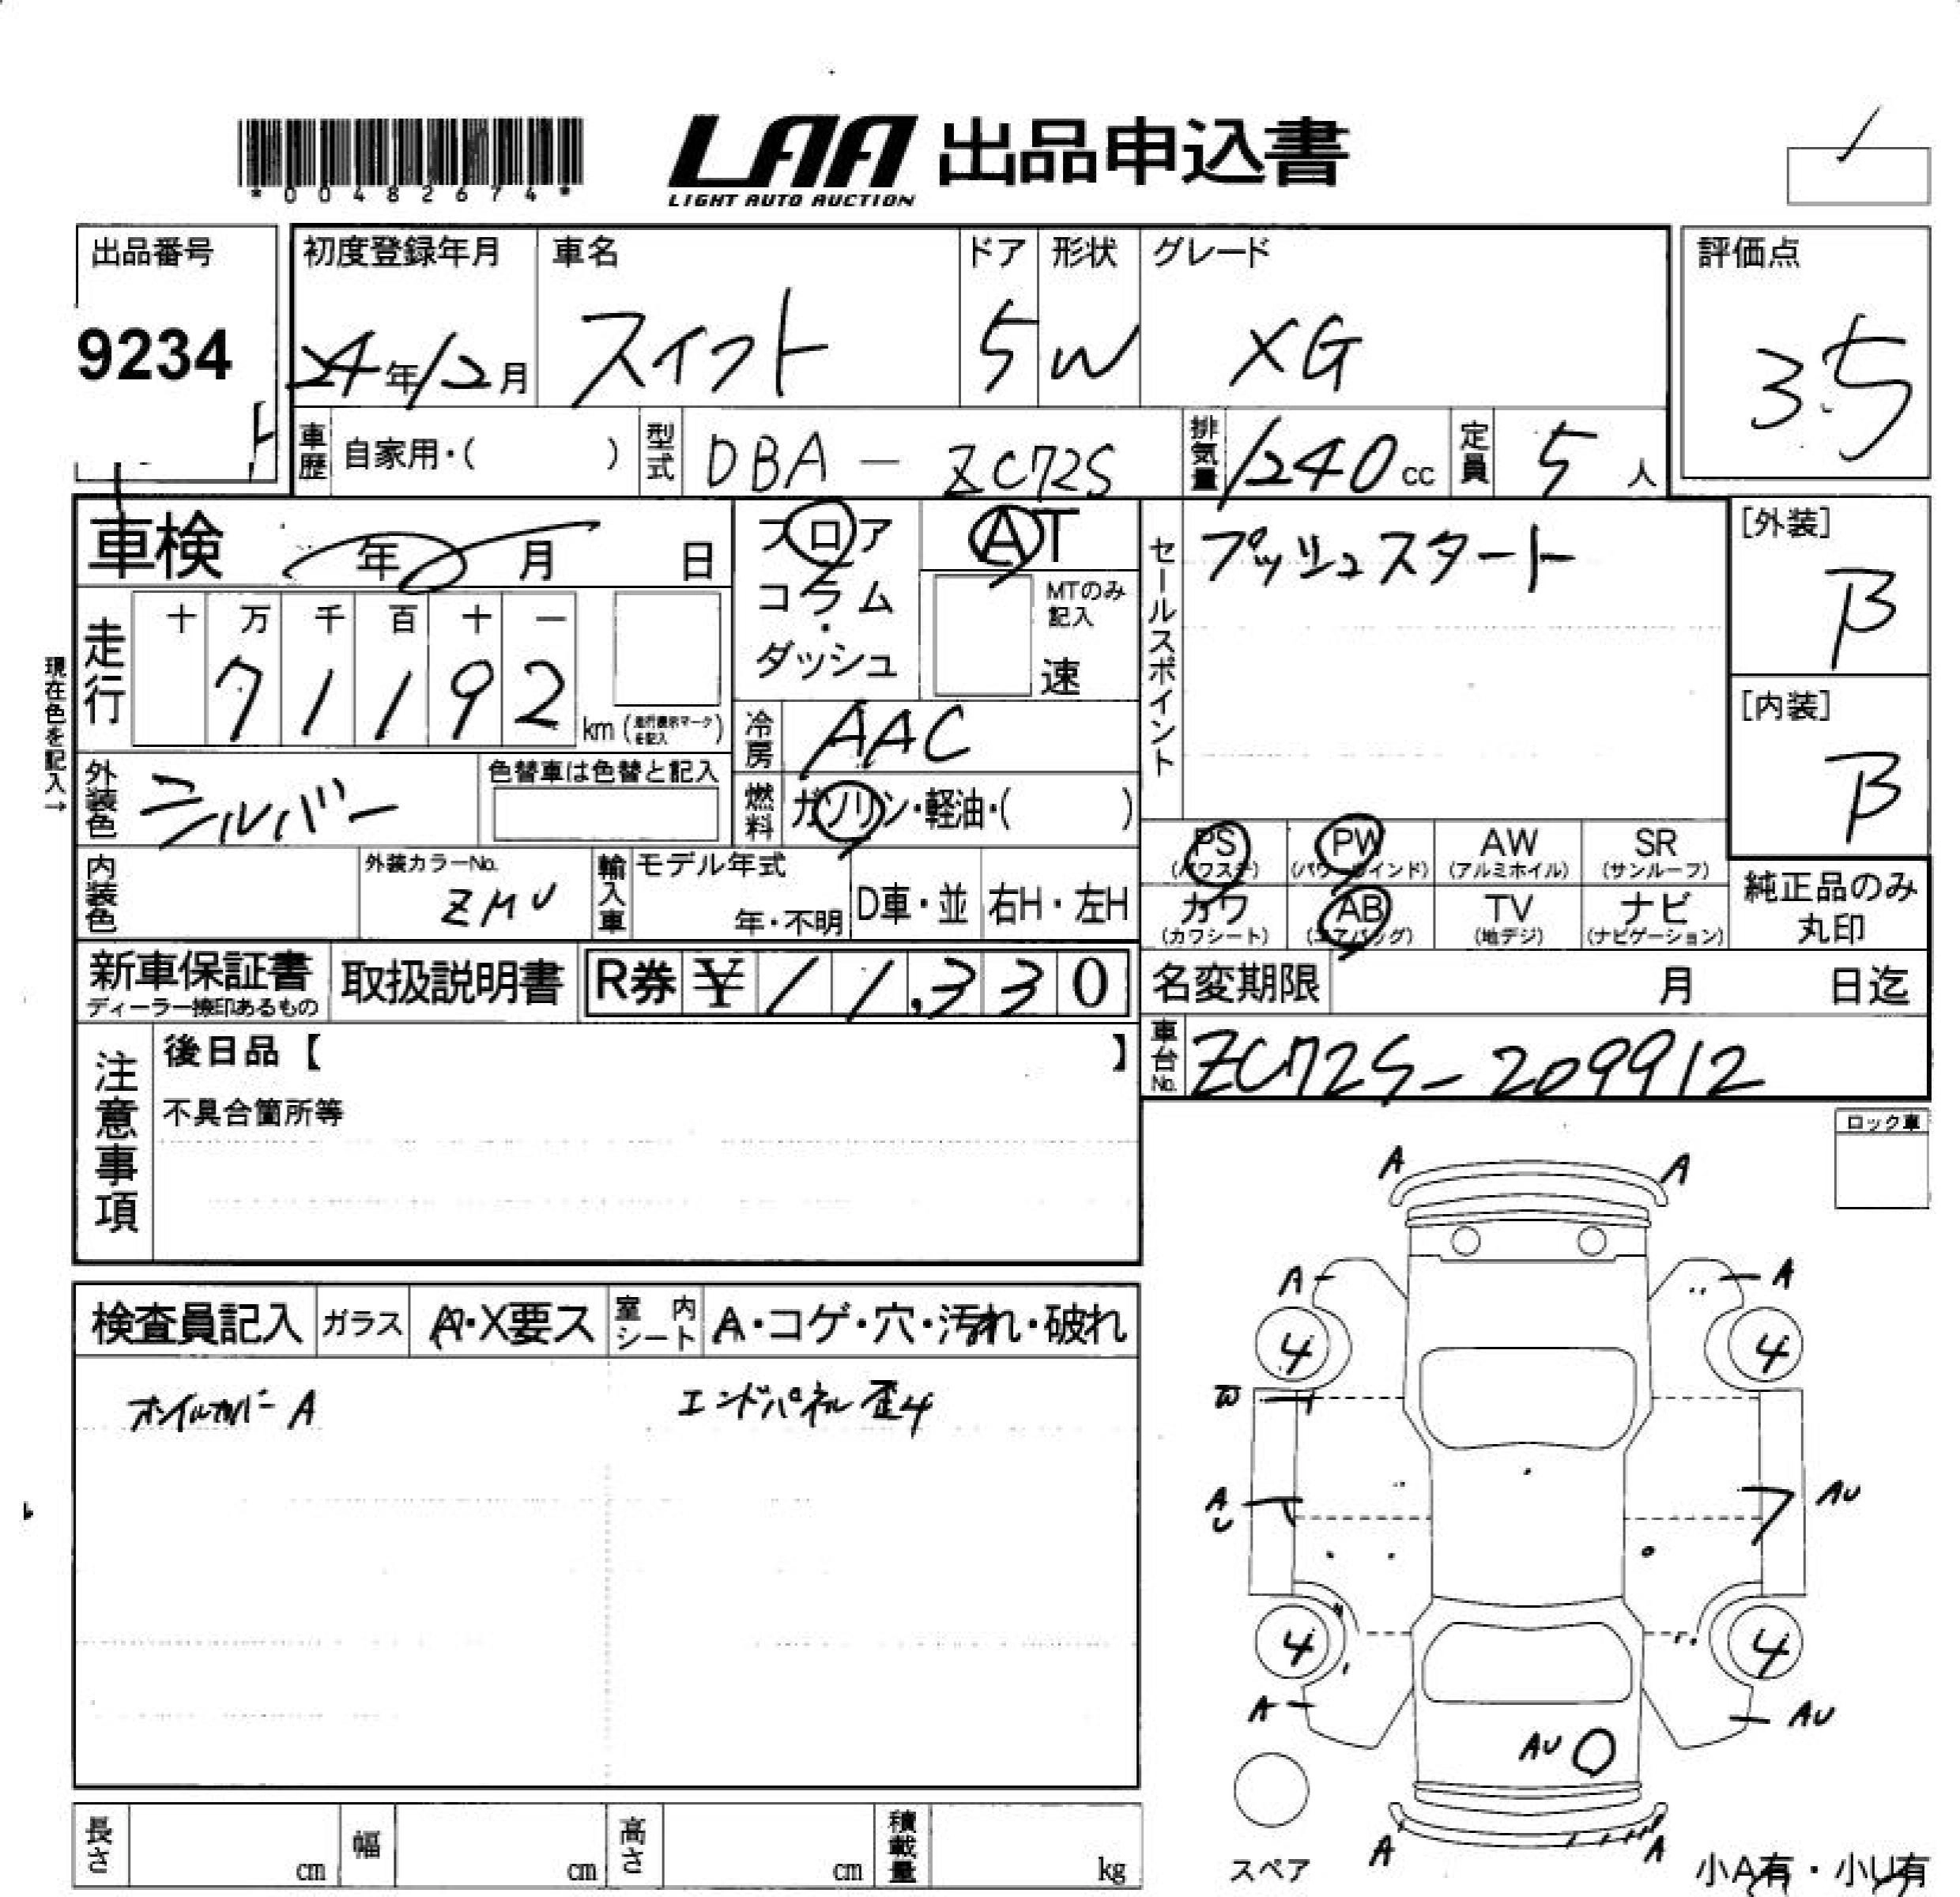 *00482674*
LAA 出品申込書
LIGHT AUTO AUCTION
出品番号
9234
初度登録年月
24年12月
車名
スイフト
ドア
5
形状
W
グレード
XG
評価点
3.5
車歴
自家用・( )
型式
DBA - ZC72S
排気量
1240cc
定員
5人
車検 年 月 日
フロア
コラム
・
ダッシュ
AT
MTのみ記入
速
セールスポイント
プッシュスタート
[外装]
B
[内装]
B
現在色を記入→
走行
十 万 千 百 十 一
7 1 1 9 2
km (走行表示マークを記入)
冷房
AAC
外装色
シルバー
色替車は色替と記入
燃料
ガソリン・軽油・( )
内装色
外装カラーNo.
ZMU
輸入車
モデル年式
年・不明
D車・並
右H・左H
PS (パワステ)
PW (パワーウインド)
AW (アルミホイル)
SR (サンルーフ)
カワ (カワシート)
AB (エアバッグ)
TV (地デジ)
ナビ (ナビゲーション)
純正品のみ
丸印
新車保証書
ディーラー捺印あるもの
取扱説明書
R券 ¥ 11,330
名変期限 月 日迄
車台No.
ZC72S-209912
注意事項
後日品【 】
不具合箇所等
ロック車
検査員記入
ガラス
A・X要ス
室内シート
A・コゲ・穴・汚れ・破れ
ホイルカバー A
エンドパネル歪4
A A
A A
4 4
W
A
U
AU
4 4
A AU
AU
A A
スペア
小A有・小U有
長さ cm
幅 cm
高さ cm
積載量 kg